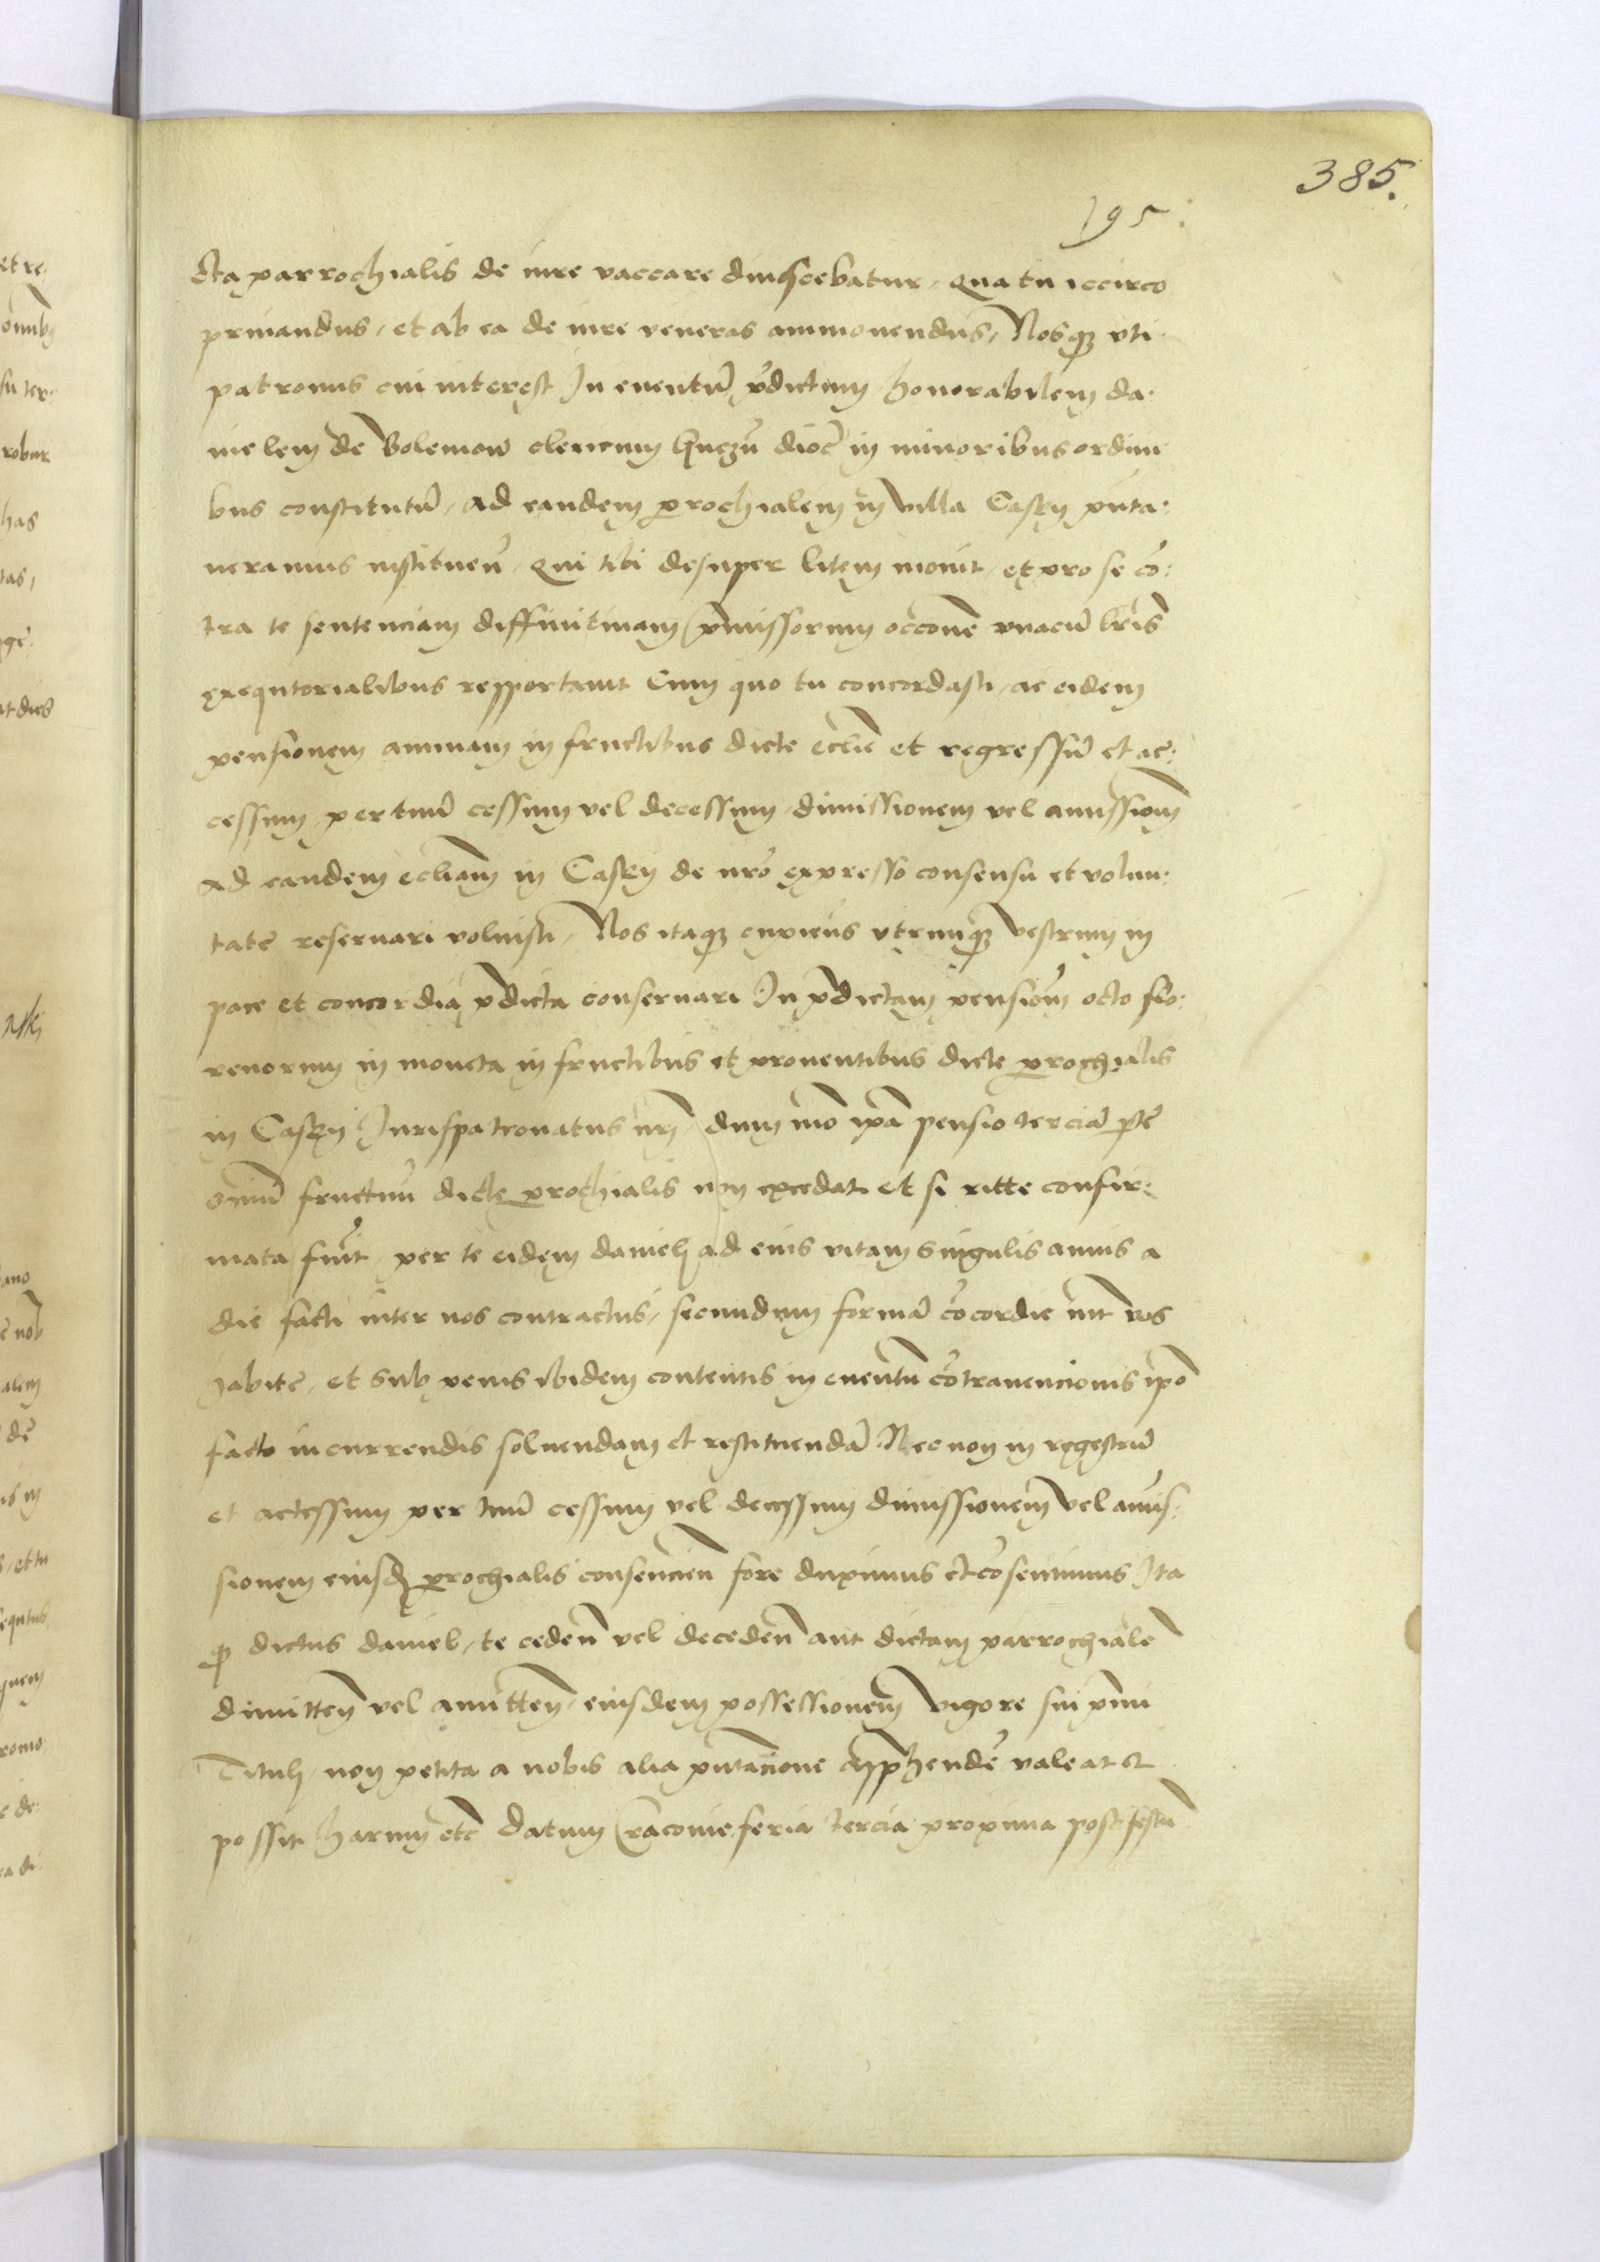 385.
195
cta parrochialis de iure vaccare dinoscebatur, qua tu iccirco
priuandus, et ab ea de iure veneras ammouendus, Nosq vti
patronus cui interest In euentũ p̃dictum honorabilem da:
nielem de Bolemow clericum gneznẽ dioc̃ in minoribus ordini
bus constitutũ, ad eandem p̱rochialem in villa Casky p̃nta:
ueramus instituen̄, qui tibi desuper litem mouit, et pro se cõ:
tra te sentenciam diffinitiuam p̃missorum occ̃one vnacũ lr̃is
exequtorialibus resportauit Cum quo tu concordasti, ac eidem
pensionem annuam in fructibus dicte ecclie et regressũ et ac:
cessum per tuũ cessum vel decessum, dimissionem vel amissiom̃
ad eandem eccliam̃ in Casky de nr̃o expresso consensu et volun:
tate reseruari voluisti, Nos itaq cupieñs vtrumq vestrum in
pace et concordia p̃dicta conseruari In p̃dictam pensiom̃ octo flo:
renorum in moneta in fructibus et prouentibus dicte p̱rochialis
in Casky Jurispatronatus nr̃j, dum mo ip̃a pensio terciã p̱tẽ
om̃iũ fructuũ dicte p̱rochialis non excedat, et si ritte confir:
mata fuĩt, per te eidem danieli ad eius vitam singulis annis a
die facti inter nos contractus, secundum formã cõcordie int̃ vos
habite, et sub penis ibidem contentis in euentũ cõtrauencionis ip̃o
facto incurrendis soluendam et restituendã Necnon in regestrũ
et accessum per tuũ cessum vel decessum dimissionem vel amis:
sionem eiusd̃ p̱rochialis consencien̄ fore duximus et cõsentimus Ita
q̃ dictus daniel, te ceden̄ vel deceden̄ aut dictam parrochialẽ
dimitten̄ vel amitten̄, eiusdem possessionem vigore sui p̃mi
Tituli, non petita a nobis alia p̃ntac̃ione app̃hendẽ valeat et
possit, harum etc̃ datum Cracouie, feria tercia proxima post festũ